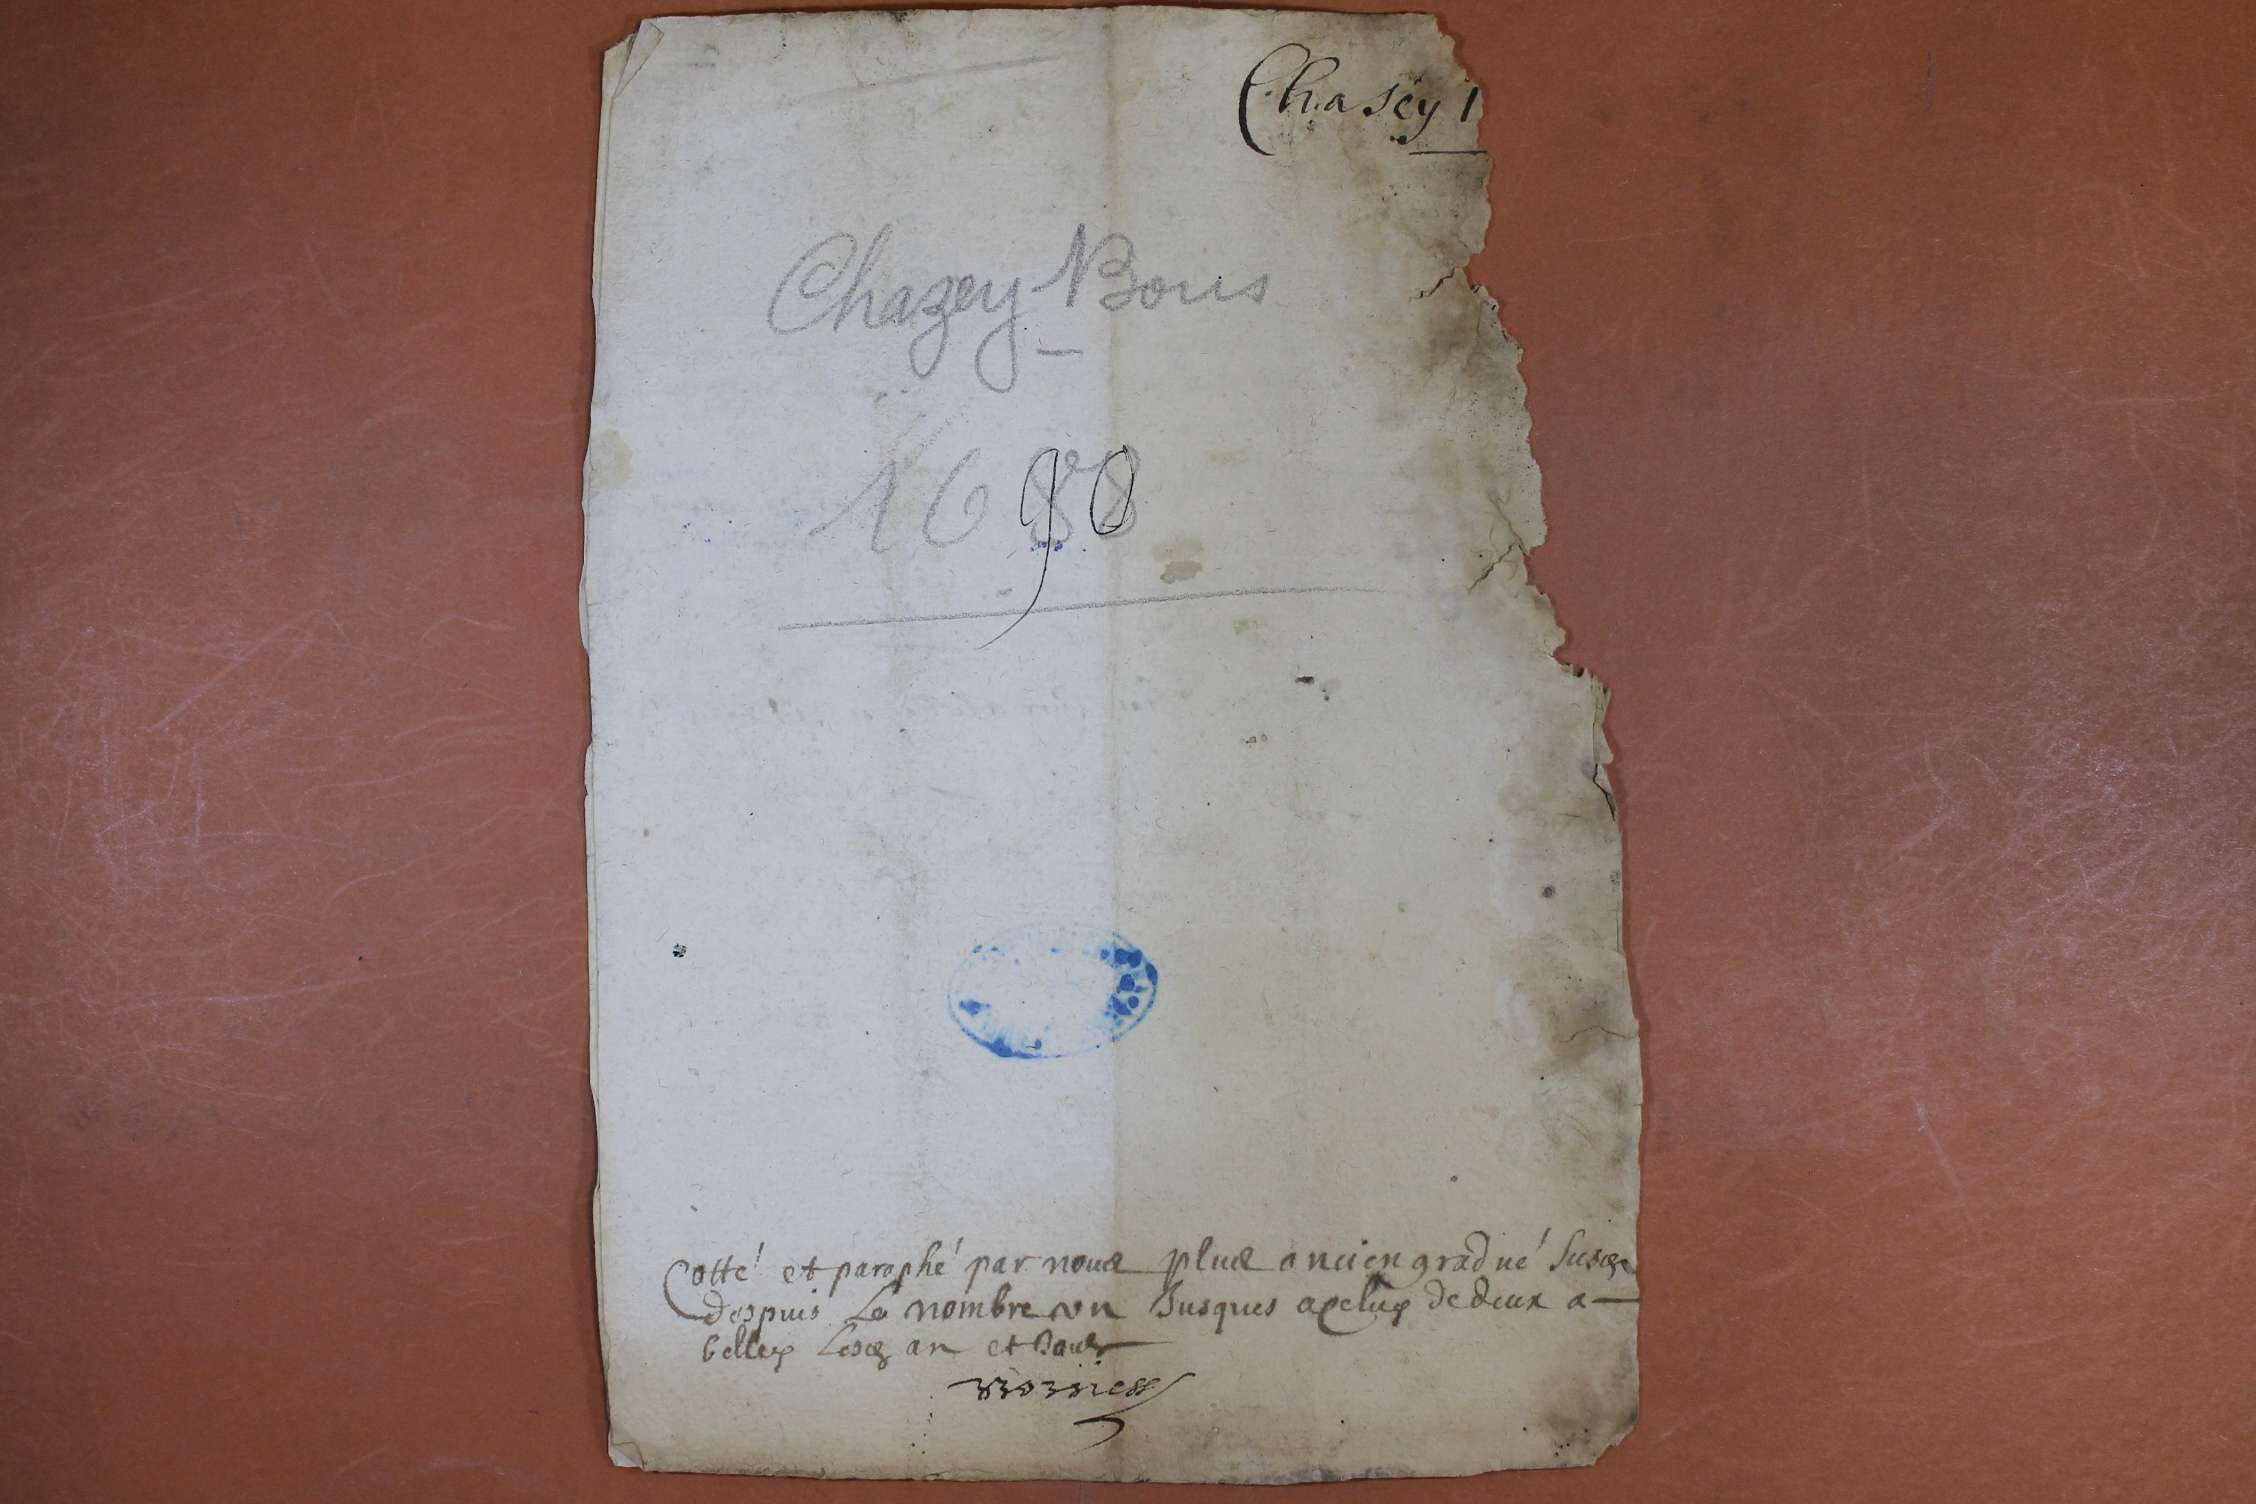 Chasey 1
Chazey Bons
1690
Cotté et paraphé par nous plus ancien gradué susd
despuis le nombre un jusques a celuy de deux a
belley lesd an et jour